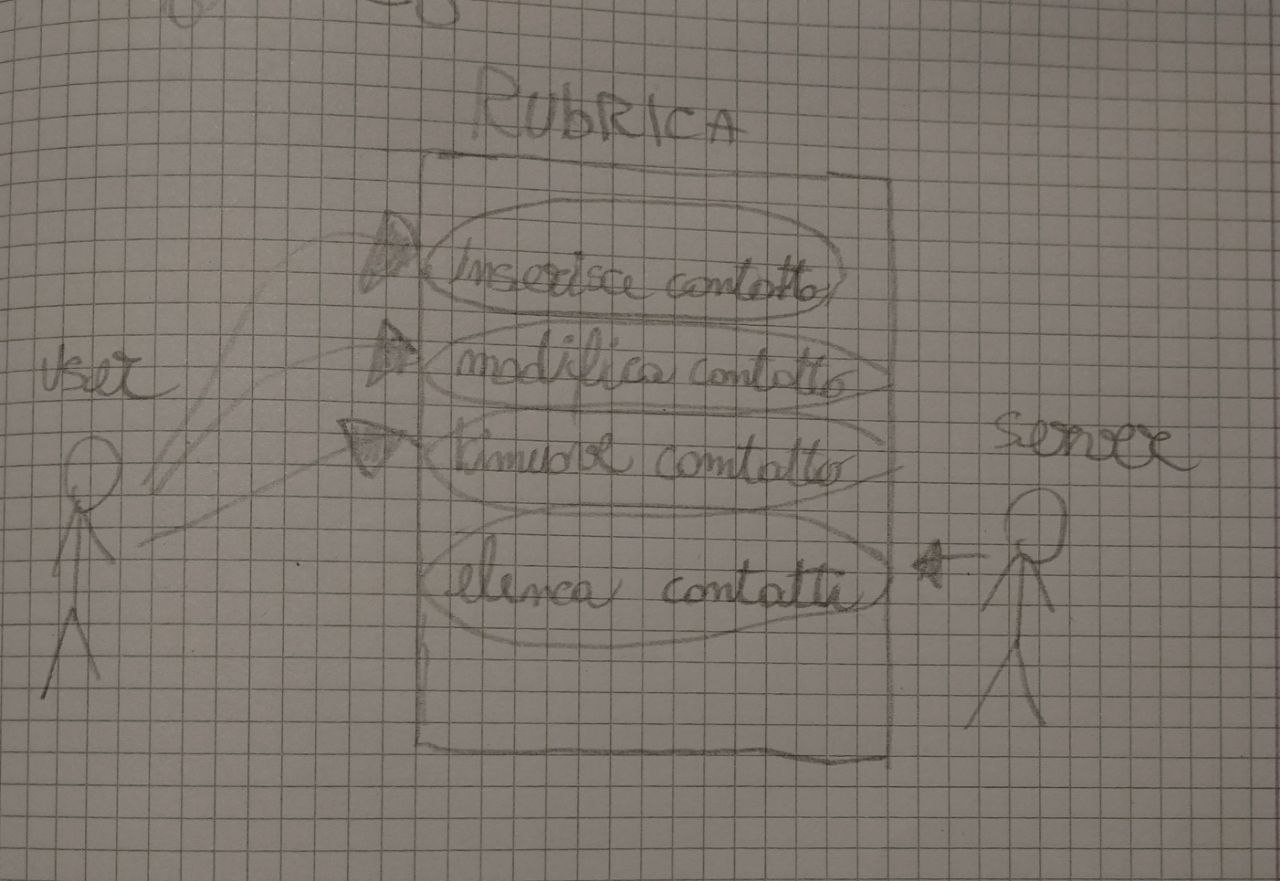 RUbRICA
inserisce contatto
modifica contatto
rimuove contatto
elenca contatti
user
server